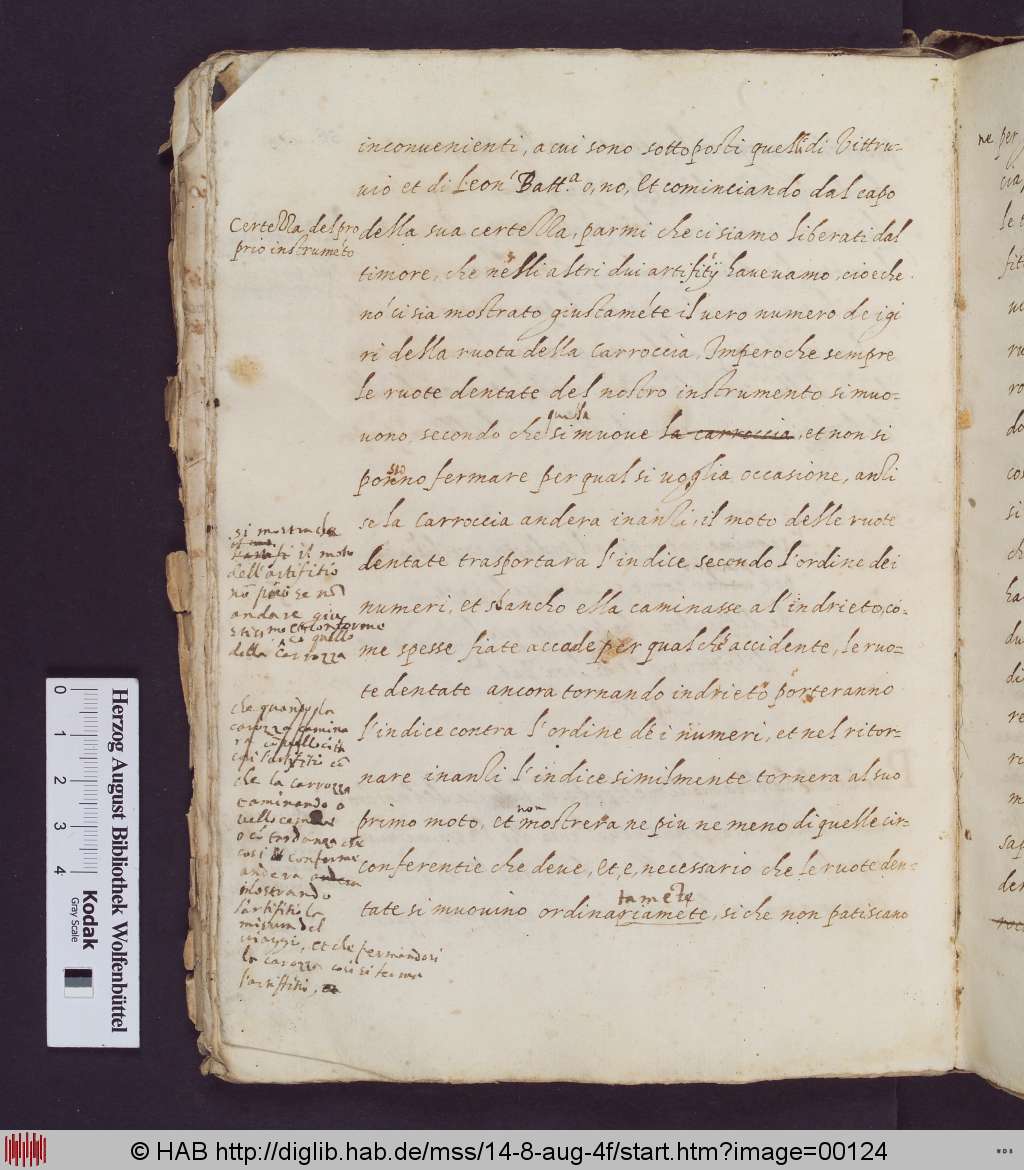 inconuenienti, a cui sono sottoposti quelli di Vittru-
uio et di Leon' Batt.a o, no, Et cominciando dal capo
della sua certezza, parmi che ci siamo liberati dal
timore, che nelli altri dui artifitij haueuamo, cioe che
nó ci sia mostrato giustaméte il uero numero de i gi
ri della ruota della Carroccia, Imperoche sempre
le ruote dentate del nostro instrumento si muo-
quella
uono, secondo che si muoue la carroccia, et non si
ponno fermare per qual si uoglia occasione, anzi
se la Carroccia andera inanzi, il moto delle ruote
dentate trasportara l'indice, secondo l'ordine dei
numeri, et s'ancho ella caminasse a l'indrieto, co-
me spesse fiate accade per qualche accidente, le ruo-
te dentate ancora tornando indrieto porteranno
l'indice contra l'ordine dei numeri, et nel ritor-
nare inanzi l'indice similmente tornera al suo
non
primo moto, et mostrera ne piu ne meno di quelle cir-
conferentie che deue, Et e, necessario che le ruote den-
taméte
tate si muouino ordinariaméte, si che non patiscano
Certezza del pro
prio instruméto
si mostra che
il moto
dell'artifitio
nõ può se nõ
andare giu
stissimo et conforme
a quello
della Carrozza
che quando la
carozza camina
cosi l'artifitio
che la carrozza
caminando o
cosi conforme
andera andera
mostrando
l'artifitio la
misura del
uiaggi, et che fermandosi
la carozza cosi si ferma
l'artifitio, et
ne per
Herzog August Bibliothek Wolfenbüttel
0 1 2 3 4
Kodak
Gray Scale
© HAB http://diglib.hab.de/mss/14-8-aug-4f/start.htm?image=00124
WDB